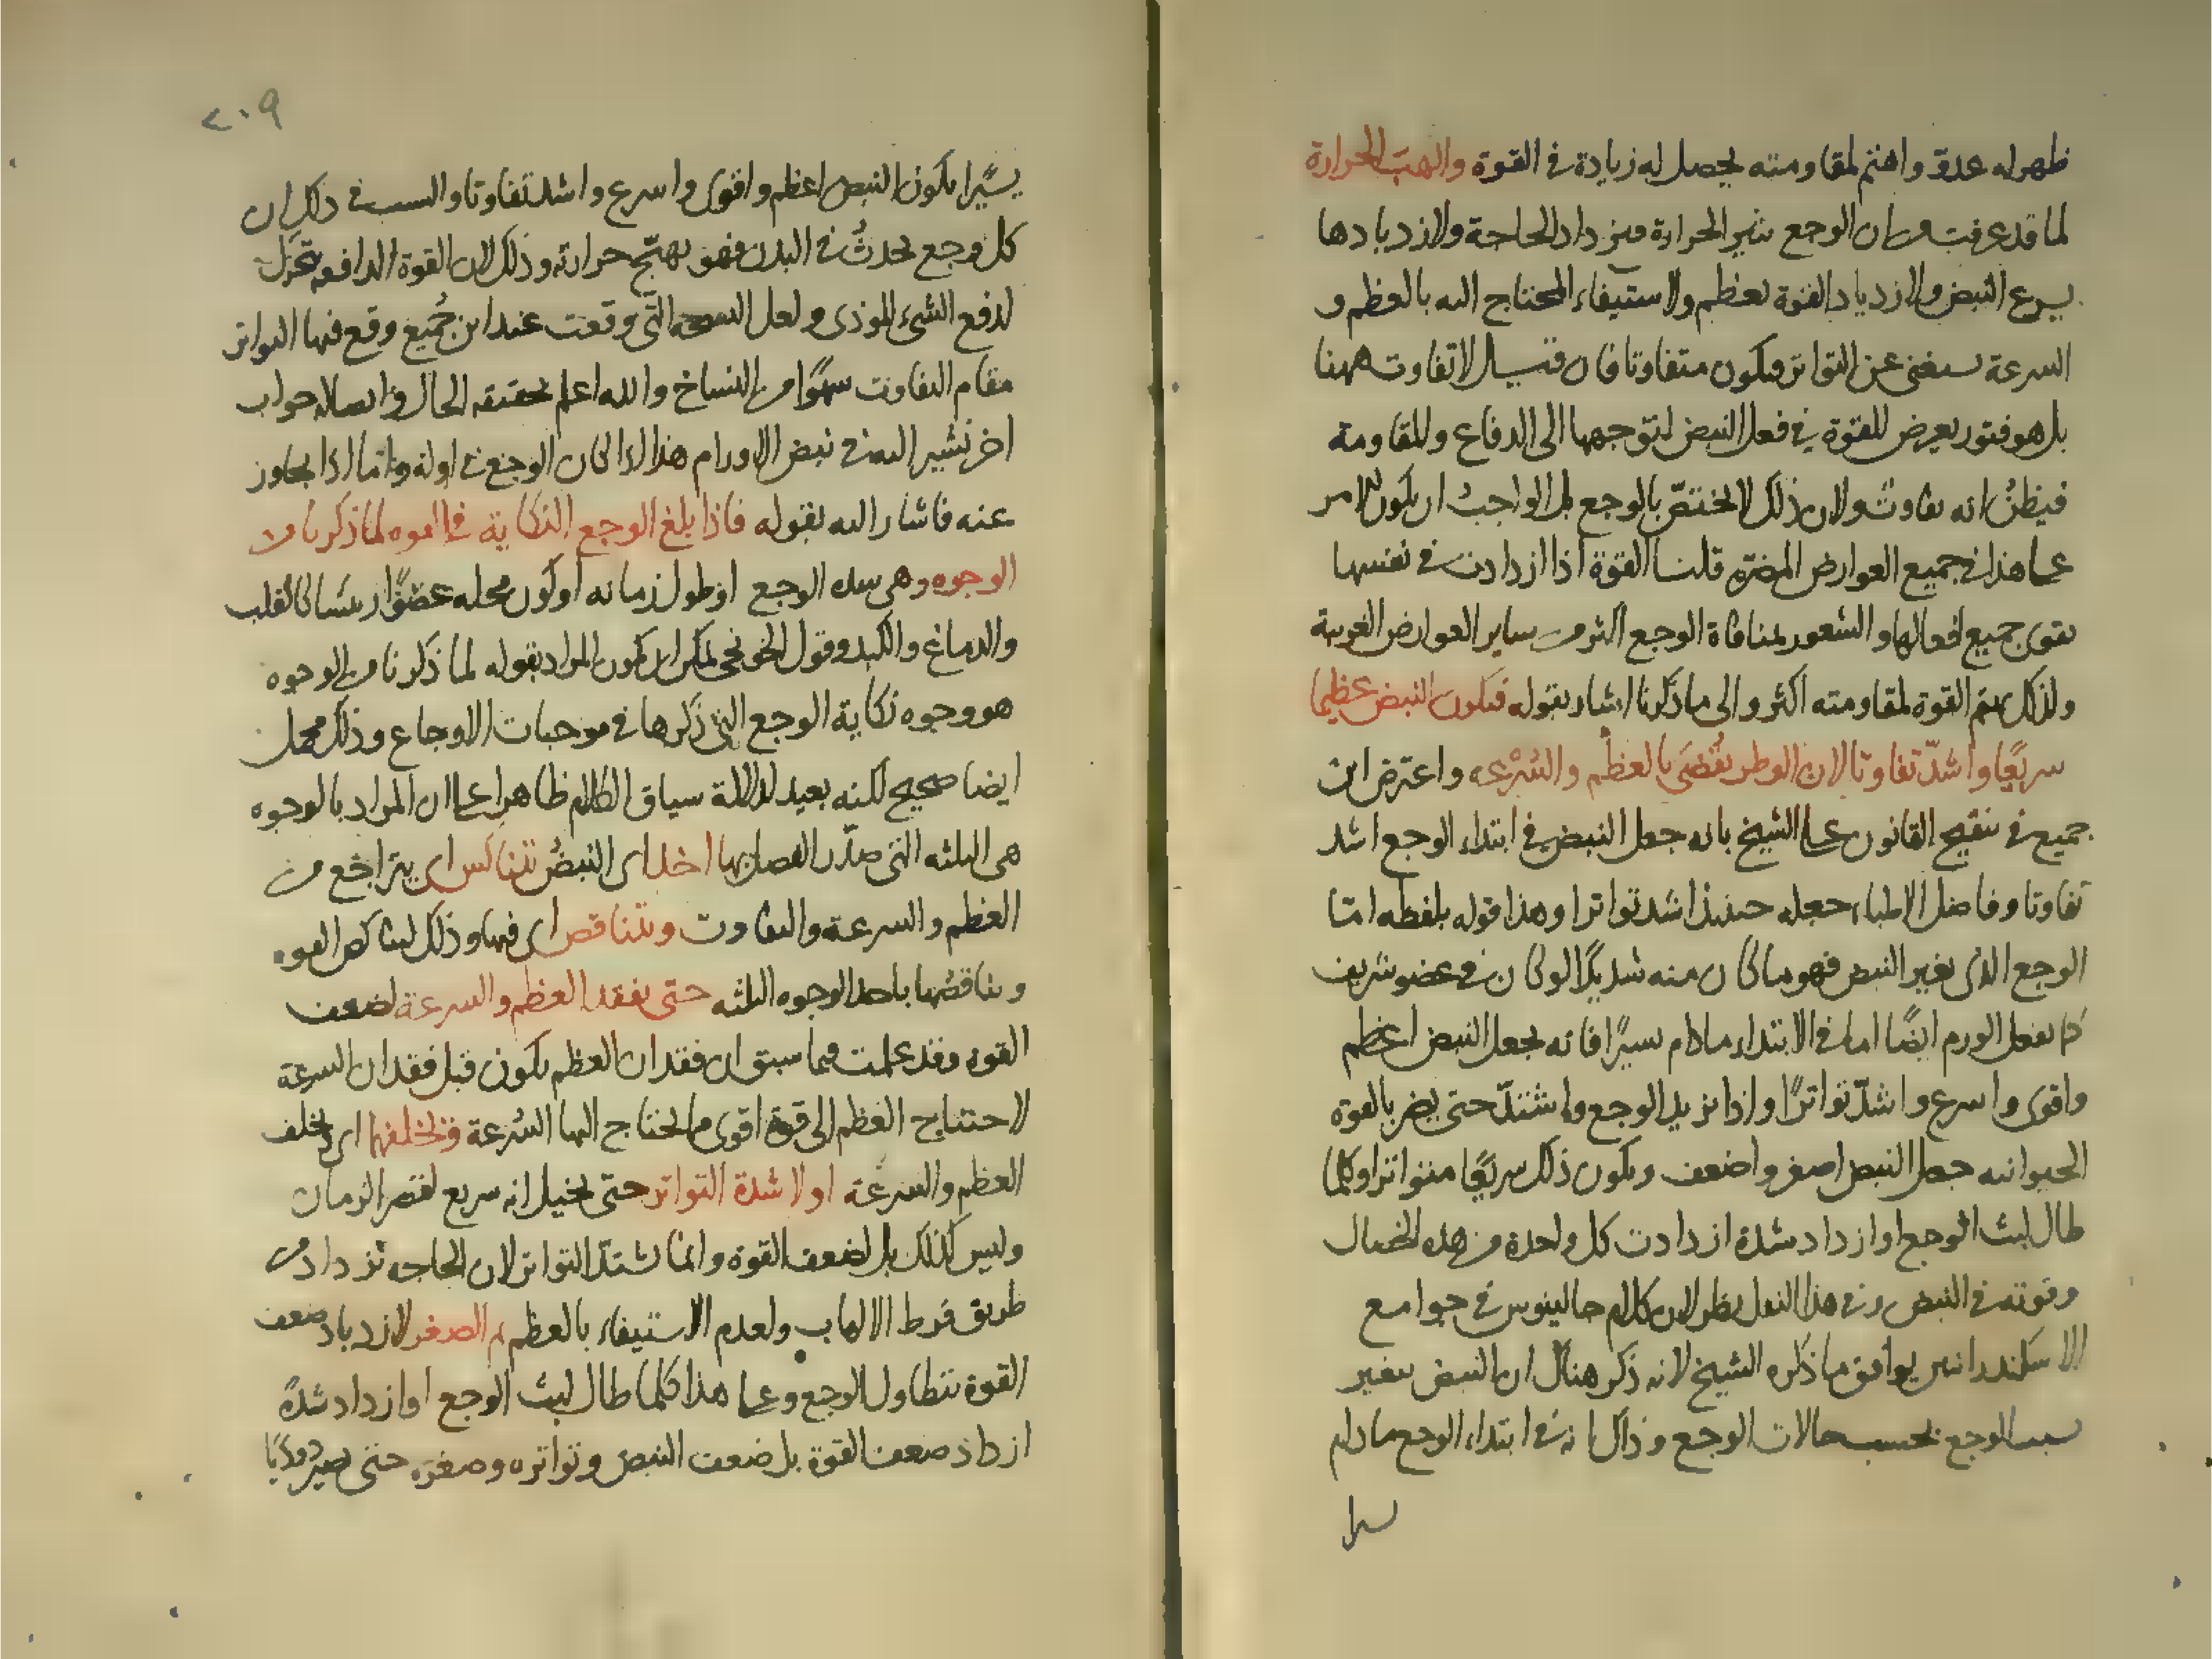 ظهر له عدوّ واهتم لمقاومته يحصل له زيادة في القوة والهب الحرارة
لما قد عرفت من ان الوجع يثير الحرارة فيزداد الحاجة ولازديادها
يسرع النبض ولازدياد القوة يعظم ولاستيفاء المحتاج اليه بالعظم و
السرعة يستغنى عن التواتر فيكون متفاوتا فان قيل لا تفاوت ههنا
بل هو فتور يعرض للقوة في فعل النبض لتوجهها الى الدفاع والمقاومة
فيظنّ انه تفاوت ولان ذلك لا يختصّ بالوجع بل الواجب ان يكون الامر
على هذا في جميع العوارض المضرة قلنا القوة اذا ازدادت في نفسها
يقوى جميع افعالها والشعور بمنافاة الوجع اكثر من ساير العوارض الغريبة
ولذلك يهتم القوة لمقاومته اكثر والى ما ذكرنا اشار بقوله فيكون النبض عظيما
سريعًا واشدّ تفاوتا لان الوطر يُقضَى بالعظم والسُرْعه واعترض ابن
جميع في تنقيح القانون على الشيخ بانه جعل النبض في ابتداء الوجع اشد
تفاوتا وفاضل الاطباء جعله حينئذ اشد تواترا وهذا قوله بلفظه امّا
الوجع الذى يغير النبض فهو ما كان منه شديدًا لو كان في عضو شريف
كما يفعل الورم ايضًا اما في الابتداء ما دام يسيرًا فانه يجعل النبض اعظم
واقوى واسرع واشدّ تواترًا واذا تزيد الوجع واشتدّ حتى يضر بالقوة
الحيوانيه جعل النبض اصغر واضعف ويكون ذلك سريعًا متواترا وكلما
طال لبث الوجع او ازداد شدة ازدادت كل واحدة من هذه الخصال
وقوته في النبض وفي هذا النقل نظر لان كلام جالينوس في جوامع
الاسكندرانيين يوافق ما ذكره الشيخ لانه ذكر هناك ان النبض يتغير
بسبب الوجع بحسب حالات الوجع وذاك انه في ابتداء الوجع ما دام
يسيرا
٢٠٩
يسيًرا يكون النبض اعظم واقوى واسرع واشد تفاوتا والسبب في ذلك ان
كل وجع يحدثُ في البدن فهو يهيّج حرارته وذلك لان القوة الدافعه تتحرك
لدفع الشىء الموذى ولعل النسخه التّى وقعت عند ابن جُميع وقع فيها التواتر
مقام التفاوت سهوًا من النساخ والله اعلم بحقيقه الحال وايضا له جواب
اخر نشير اليه في نبض الاورام هذا اذا كان الوجع في اوله واما اذا تجاوز
عنه فاشار اليه بقوله فاذا بلغ الوجع النكاية في القوه لما ذكرنا من
الوجوه وهى شده الوجع او طول زمانه او كون محله عضوًا رئيسا كالقلب
والدماغ والكبد وقول الخونجى يمكن ان يكون المراد بقوله لما ذكرنا من الوجوه
هو وجوه نكاية الوجع التى ذكرها في موجبات الاوجاع وذلك محمل
ايضا صحيح لكنه بعيد لدلالة سياق الكلام ظاهرا على ان المراد بالوجوه
هى الثلثه التى صدّر الفصل بها اخذ اى النبضُ يتناكس اى يتراجع من
العظم والسرعة والتفاوت ويتناقص اى فيها وذلك لتناكص القوه
وتناقُصها باحد الوجوه الثلثه حتى يفقد العظم والسرعة لضعف
القوه وقد علمت فيما سبق ان فقدان العظم يكون قبل فقدان السرعة
لاحتياج العظم الى قوة اقوى مما يحتاج اليها السُرعة ويخلفها اى يخلف
العظم والسرعة اولا شدة التواتر حتى يخيل انه سريع لقصر الزمان
وليس كذلك بل لضعف القوه وانما يشتدّ التواتر لان الحاجه تزداد من
طريق فرط الالهاب ولعدم الاستيفاء بالعظم ثم الصغر لازدياد ضعف
القوة بتطاول الوجع وعلى هذا كلما طال لبث الوجع او ازداد شدةً
ازداد ضعف القوة بل ضعف النبض وتواتره وصغره حتى يصير دوديًا